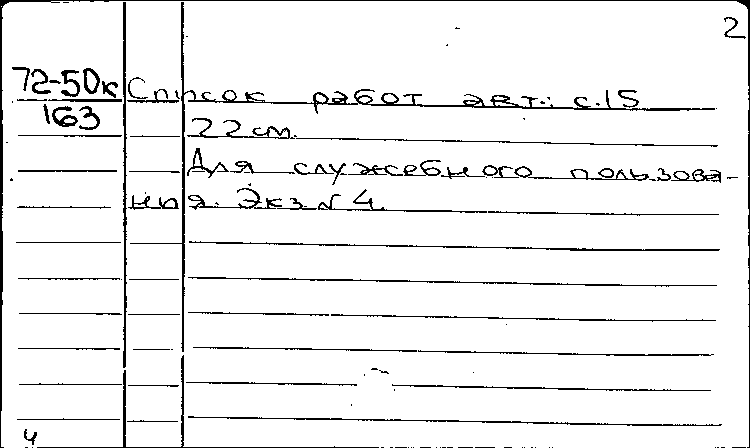 2
72-50к Список работ авт.: с.15
163 22 см.
Для служебного пользова-
ния. Экз № 4.
4